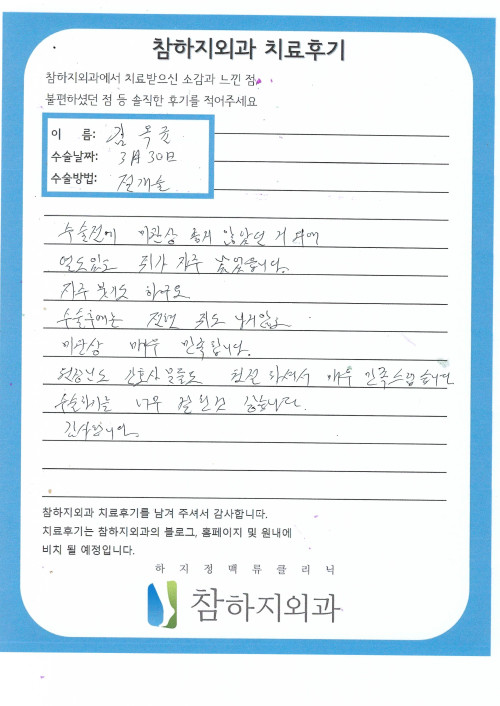 참하지외과 치료후기
참하지외과에서 치료받으신 소감과 느낀 점,
불편하셨던 점 등 솔직한 후기를 적어주세요
이 름: 김옥균
수술날짜: 3月 30日
수술방법: 전개술
수술전에 미관상 좋지 않았던 거 때에
열도있고 쥐가 자주 났었습니다.
자주 붓기도 하구요
수술후에는 전혀 쥐도 나지않고
미관상 매우 만족합니다.
원장님도 간호사분들도 친절하셔서 매우 만족스럽습니다
수술하기는 너무 잘한것 같습니다.
감사합니다.
참하지외과 치료후기를 남겨 주셔서 감사합니다.
치료후기는 참하지외과의 블로그, 홈페이지 및 원내에
비치 될 예정입니다.
하지정맥류클리닉
참하지외과